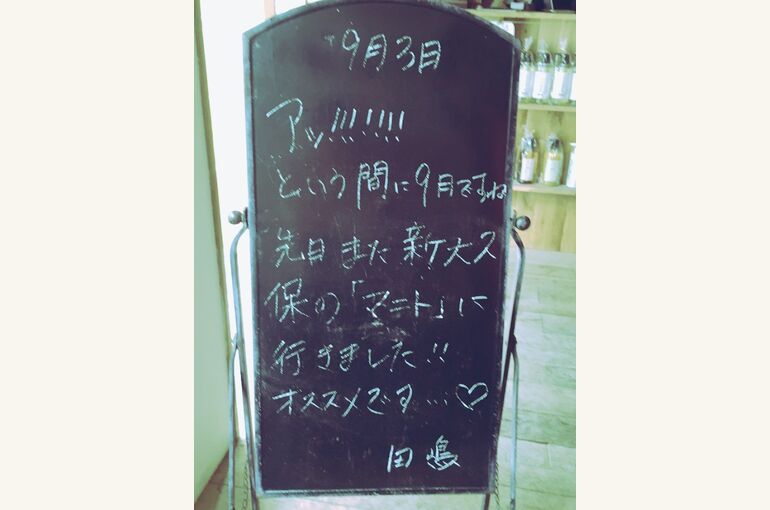 9月3日
アッ!!!!!!!
という間に9月ですね
先日また新大久
保の「マニト」に
行きました!!
オススメです…♡
田嶋